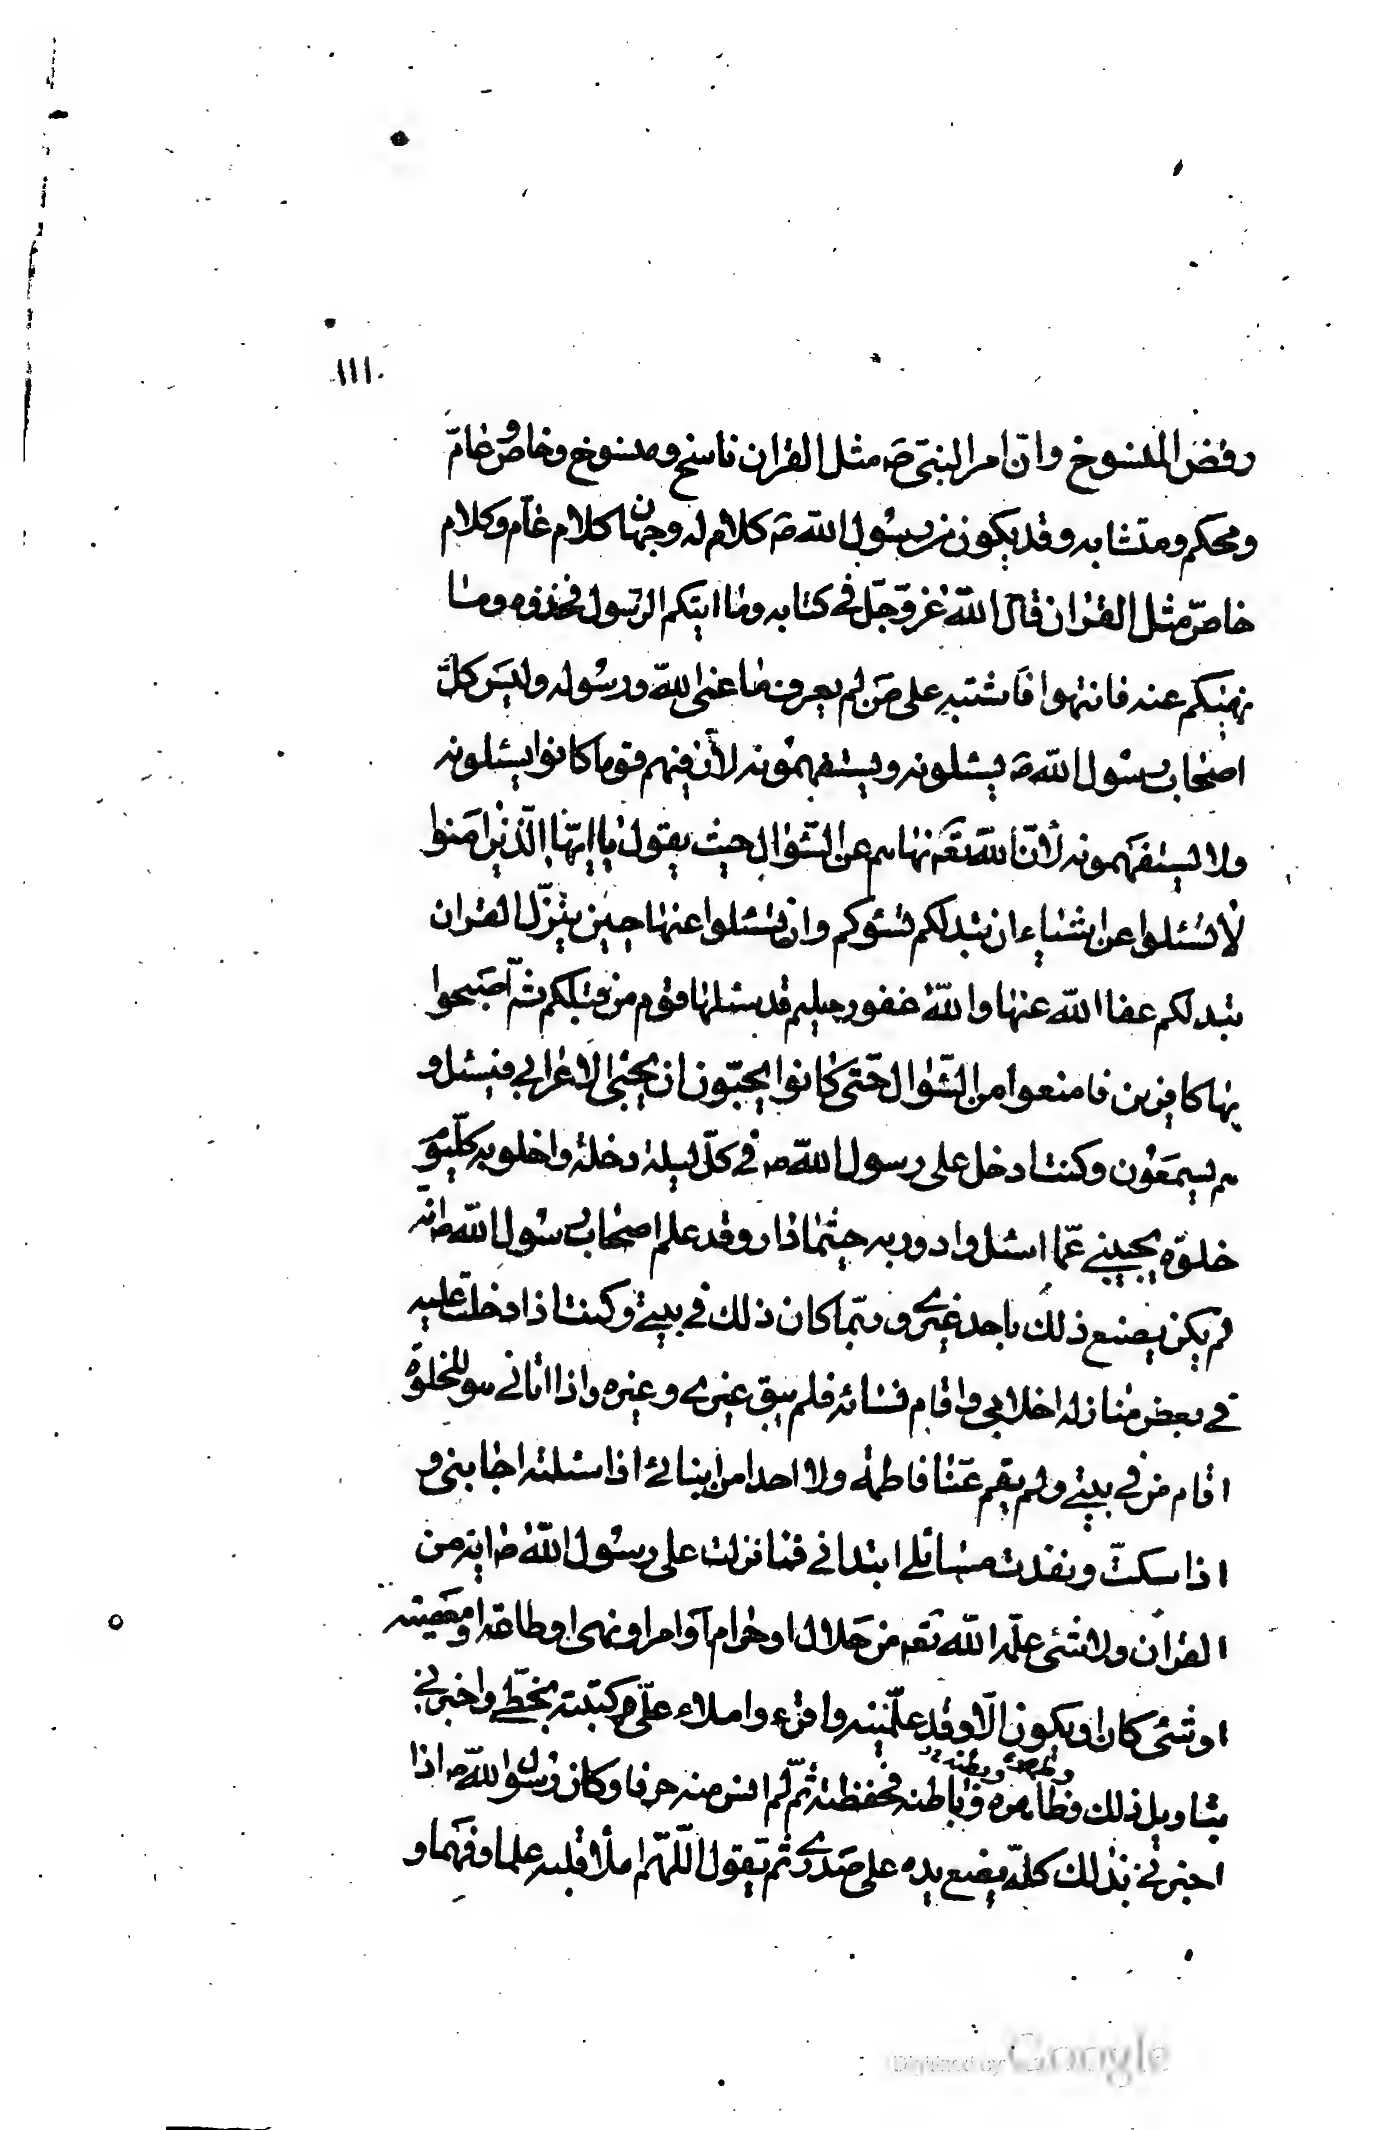 ١١١
رفض المنسوخ وانّ امر النبىّ صَ مثل القران ناسخ ومنسوخ وخاصّ وعامّ
ومحكم ومتشابه وقد يكون من رسُول اللّه صَ كلام له وجهان كلام عامّ وكلام
خاصّ مثل القران قال اللّه عزّ وجلّ فى كتابه وما اتيكم الرّسول فخذوه وما
نهيكم عنه فانتهوا فاشتبه على مَن لم يعرف ما عنى اللّه ورسُوله وليسَ كلّ
اصحاب رسُول اللّه صَ يسئلونه ويستفهمونه لأن فيهم قوما كانوا يسئلونه
ولا يستفهمونه لأنّ اللّه تعَ نهاهم عن السّؤال حيث يقول يا ايّها الّذين امنوا
لا تسئلوا عن اشياء ان تبدلكم تسؤكم وان تسئلوا عنها حين ينزّل القران
تبدلكم عفا اللّه عنها واللّه غفور حليم قد سئلها قوم من قبلكم ثمّ اصبَحوا
بها كافرين فامنعوا من السّؤال حتّى كانوا يحبّون ان يجئى الاعرابى فيسئل و
هم يسمَعُون وكنت ادخل على رسول اللّه ص فى كلّ ليلة دخلة واخلو به كلّ يوم
خلوة يجيبنى عمّا اسئل وادور به حيثما دار وقد علم اصحاب رسُول اللّه ص انّه
لم يكن يصنع ذلك باحد غيرى وربّما كان ذلك فى بيتى وكنت اذا دخلت عليه
فى بعض منازله اخلا بى واقام نسائه فلم يبق غيرى وغيره واذا اتانى هو للخلوة
اقام من فى بيتى ولم يقم عنّا فاطمة ولا احدا من ابنائى اذا سئلته اجابنى و
اذا سكتّ ونفدت مسائلى ابتدانى فما نزلت على رسُول اللّه ص اية من
القران ولا شئى علّمه اللّه تعَ من حلال او حرام او امر او نهى او طاعة او معصية
او شئى كان او يكون الّا وقد علّمنيه واقرء واملاء علىّ وكتبته بخطّى واخبرنى
بتاويل ذلك وظاهره وباطنه فحفظته ثمّ لم انس منه حرفا وكان رسُول اللّه ص اذا
وظهره وبطنه
اخبرنى بذلك كلّه يضع يده على صَدرى ثم يقول اللّهمّ املأ قلبه علما وفهما و
Digitized by Google